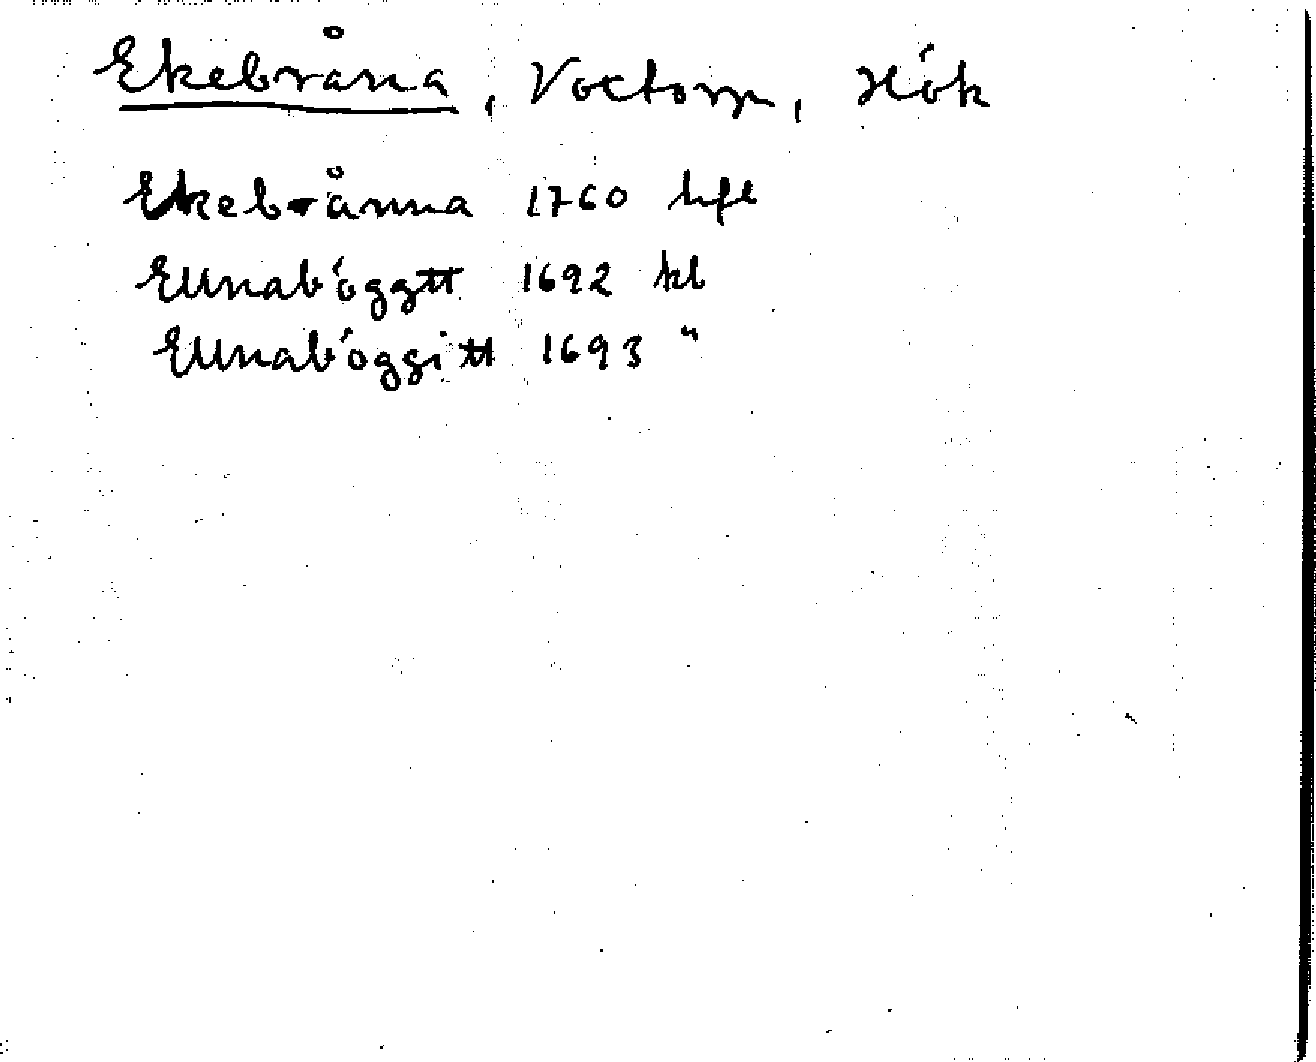 Ekebråna, Voxtorp, Hök
Ekebrånna 1760 hfl
Ellnabóggtt 1692 kb
Ellnabóggitt 1693 "